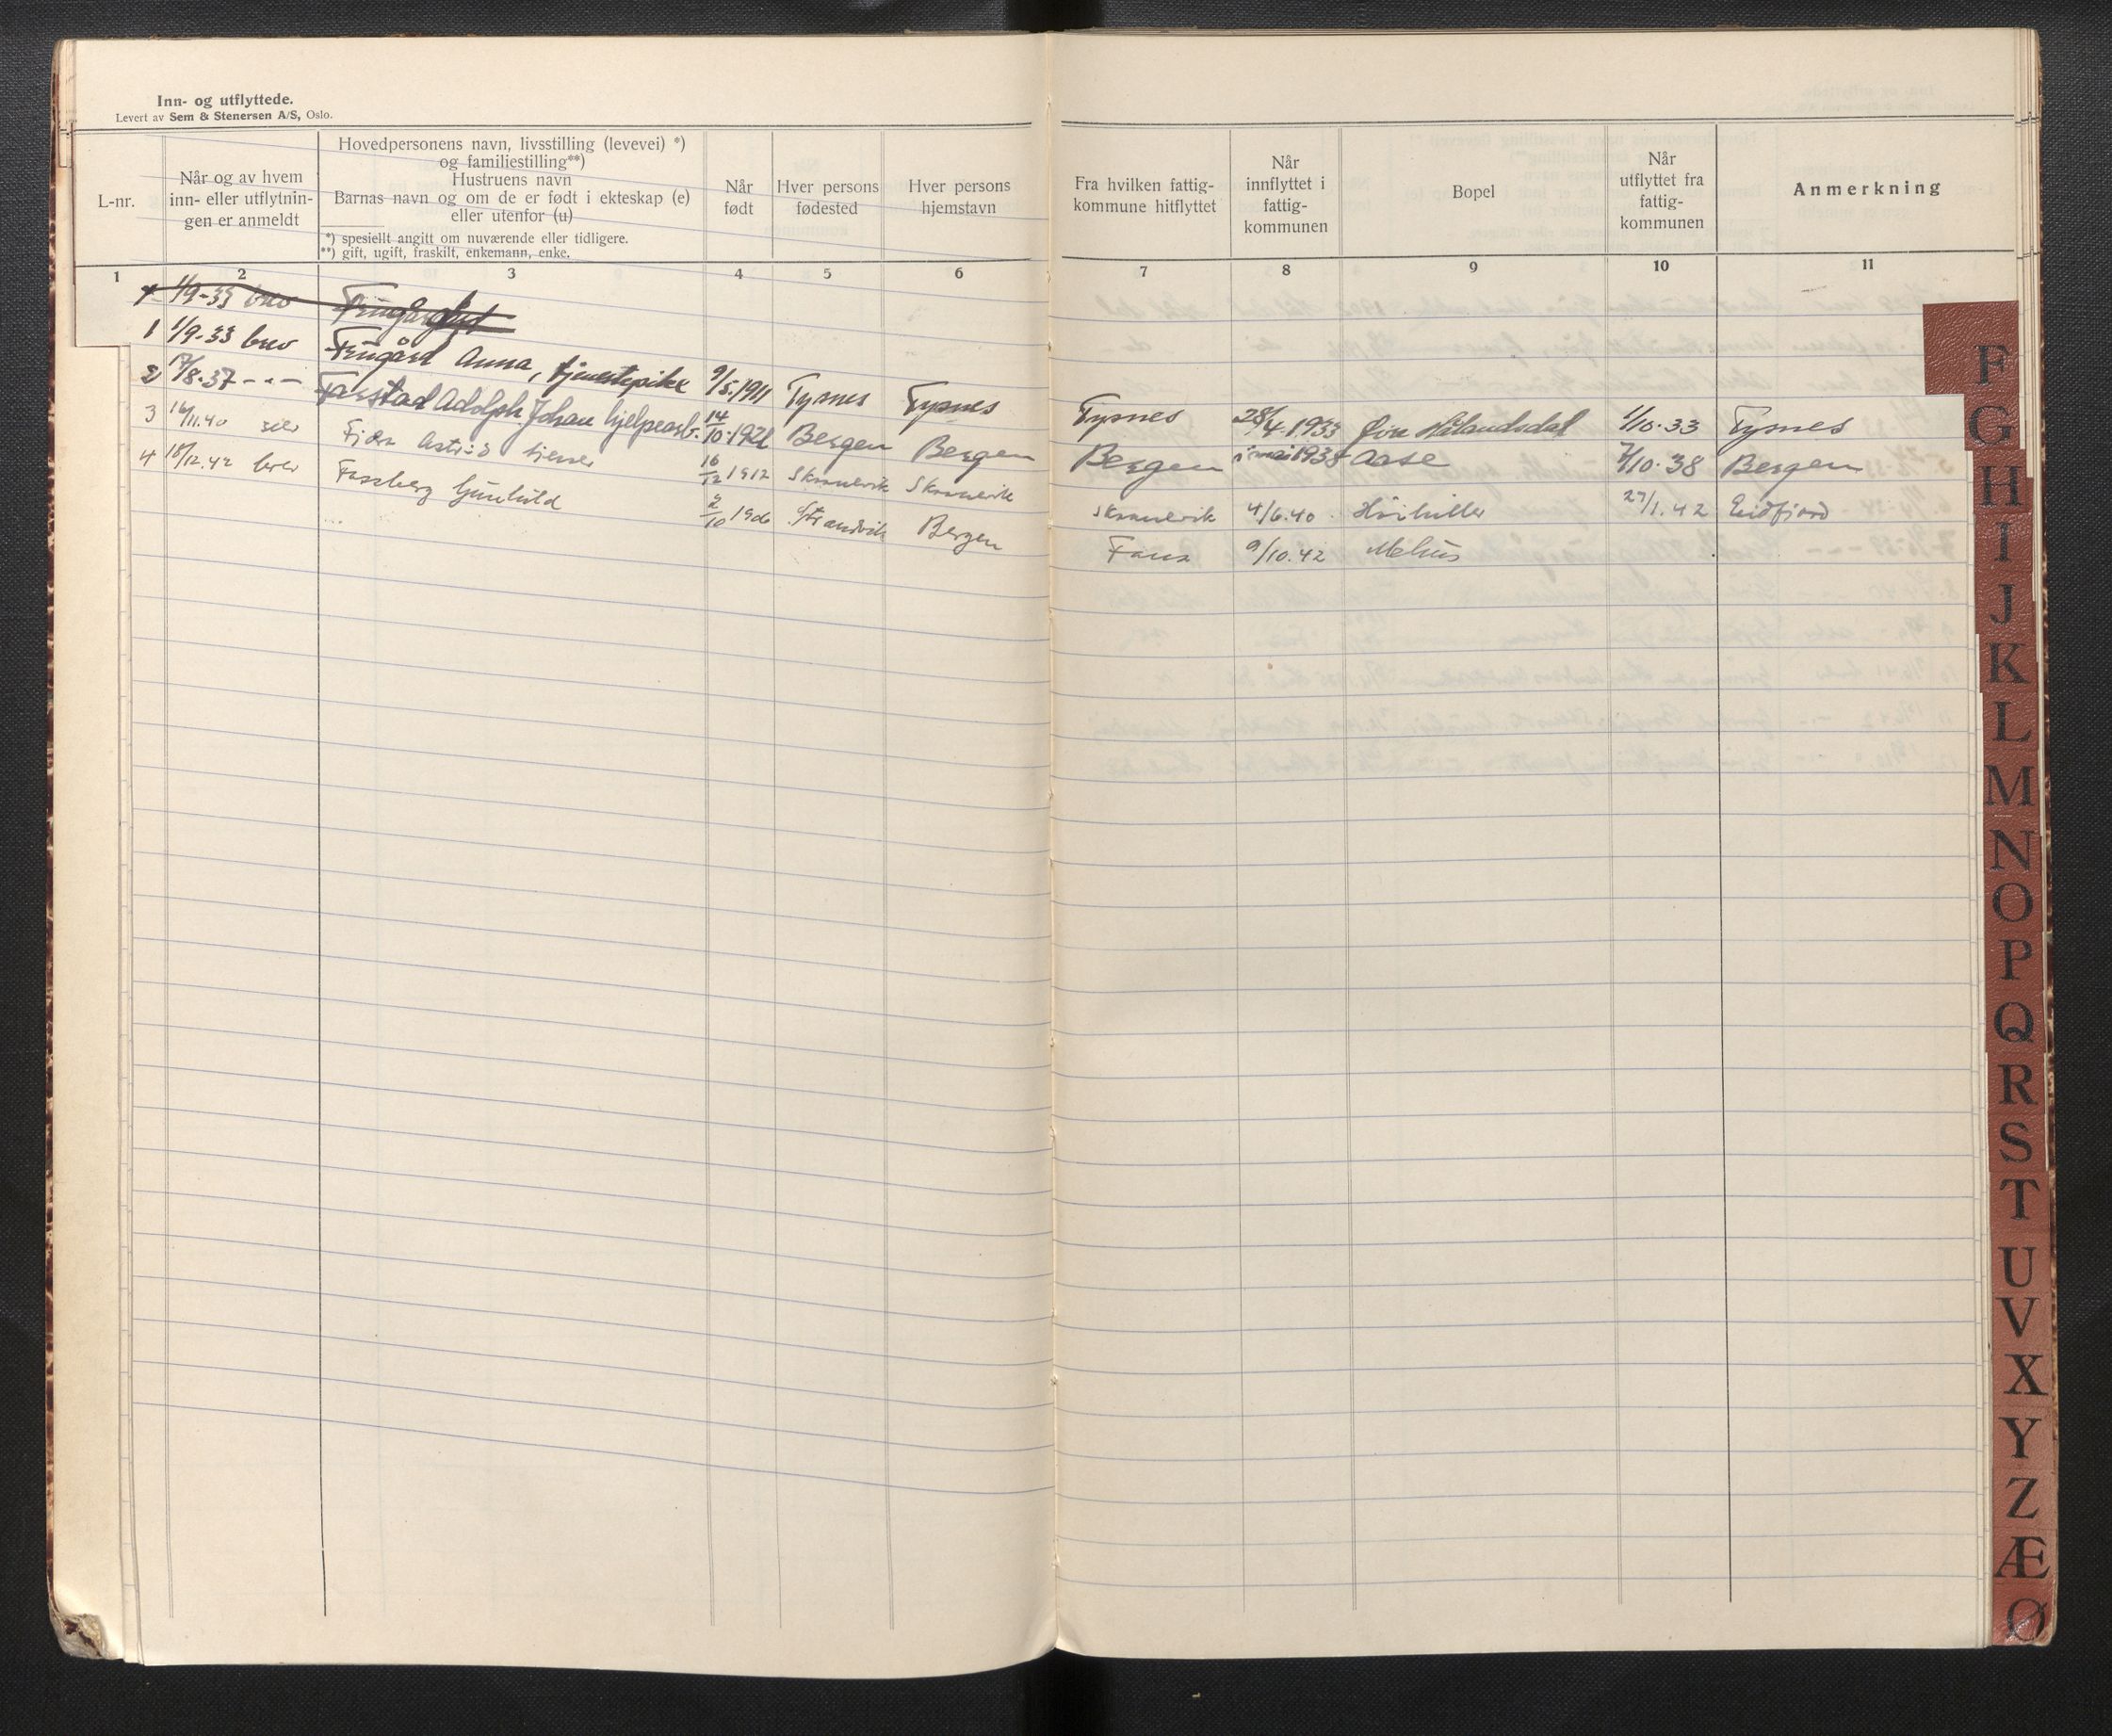 Inn- og utflyttede.
Levert av Sem & Stenersen A/S, Oslo.
L-nr.
Når og av hvem
inn- eller utflytnin-
gen er anmeldt
Hovedpersonens navn, livsstilling (levevei) *)
og familiestilling**)
Hustruens navn
Barnas navn og om de er født i ekteskap (e)
eller utenfor (u)
*) spesiellt angitt om nuværende eller tidligere.
**) gift, ugift, fraskilt, enkemann, enke.
Når
født
Hver persons
fødested
Hver persons
hjemstavn
Fra hvilken fattig-
kommune hitflyttet
Når
innflyttet i
fattig-
kommunen
Bopel
Når
utflyttet fra
fattig-
kommunen
Anmerkning
1 2 3 4 5 6 7 8 9 10 11
1/9-33 brev
1 1/9-33 brev Fingård Anna, tjenestepike 9/5.1911 Tysnes Tysnes Tysnes 28/4.1933 Øvre Hålandsdal 1/10.33 Tysnes
2 17/8.37 - " - Farstad Adolph Johan hjelpearb. 14/10.1921 Bergen Bergen Bergen i mai 1938 Aase 7/10.38 Bergen
3 16/11.40 Astrid 16/12 1912 Skånevik Skånevik Skånevik 4/6.40 27/1.42 Eidfjord
4 18/12.42 brev Fossberg Gunhild 2/10 1906 Strandvik Bergen Fana 9/10.42 Melhus
F
G
H
I
J
K
L
M
N
O
P
Q
R
S
T
U
V
X
Y
Z
Æ
Ø